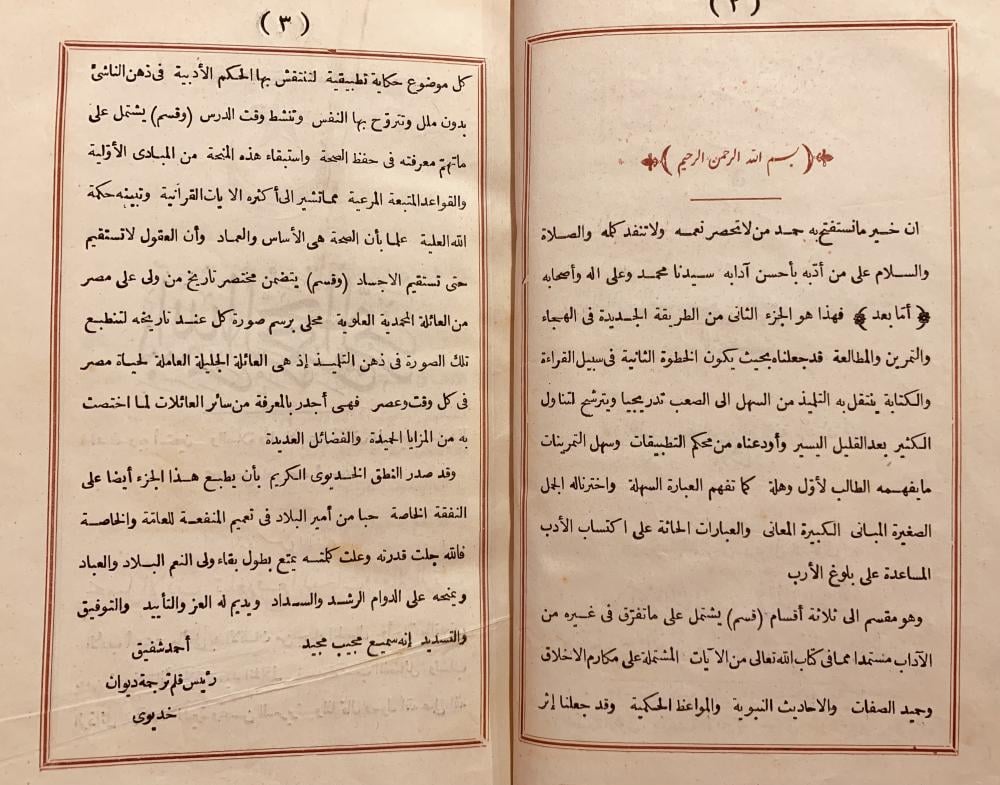 (٢)
﴿ بسم الله الرحمن الرحيم ﴾
ان خير ما نستفتح به حمد من لا تحصر نعمه ولا تنفد كلمه والصلاة
والسلام على من أدّبه بأحسن آدابه سيدنا محمد وعلى اله وأصحابه
﴿ أما بعد ﴾ فهذا هو الجزء الثانى من الطريقة الجديدة فى الهجاء
والتمرين والمطالعة قد جعلناه بحيث يكون الخطوة الثانية فى سبيل القراءة
والكتابة ينتقل به التلميذ من السهل الى الصعب تدريجيا ويترشح لتناول
الكثير بعد القليل اليسير وأودعناه من محكم التطبيقات وسهل التمرينات
ما يفهمه الطالب لأوّل وهلة كما تفهم العبارة السهلة واخترنا له الجمل
الصغيرة المبانى الكبيرة المعانى والعبارات الحاثة على اكتساب الأدب
المساعدة على بلوغ الأرب
وهو مقسم الى ثلاثة أقسام (قسم) يشتمل على ما تفرّق فى غيره من
الآداب مستمدا مما فى كتاب الله تعالى من الآيات المشتملة على مكارم الاخلاق
وحميد الصفات والاحاديث النبوية والمواعظ الحكمية وقد جعلنا إثر
(٣)
كل موضوع حكاية تطبيقية لتنتقش بها الحكم الأدبية فى ذهن الناشئ
بدون ملل وتتروّح بها النفس وتنشط وقت الدرس (وقسم) يشتمل على
ما تهمّ معرفته فى حفظ الصحة واستبقاء هذه المنحة من المبادى الأوّلية
والقواعد المتبعة المرعية مما تشير الى أكثره الايات القرآنية وتبينه حكمة
الله العلية علما بأن الصحة هى الأساس والعماد وأن العقول لا تستقيم
حتى تستقيم الاجساد (وقسم) يتضمن مختصر تاريخ من ولى على مصر
من العائلة المحمدية العلوية محلى برسم صورة كل عند تاريخه لتنطبع
تلك الصورة فى ذهن التلميذ إذ هى العائلة الجليلة العاملة لحياة مصر
فى كل وقت وعصر فهى أجدر بالمعرفة من سائر العائلات لما اختصت
به من المزايا الحميدة والفضائل العديدة
وقد صدر النطق الخديوى الكريم بأن يطبع هذا الجزء أيضا على
النفقة الخاصة حبا من أمير البلاد فى تعميم المنفعة للعامّة والخاصة
فالله جلت قدرته وعلت كلمته يمتع بطول بقاء ولى النعم البلاد والعباد
ويمنحه على الدوام الرشد والسداد ويديم له العز والتأييد والتوفيق
والتسديد إنه سميع مجيب مجيد
أحمد شفيق
رئيس قلم ترجمة ديوان
خديوى